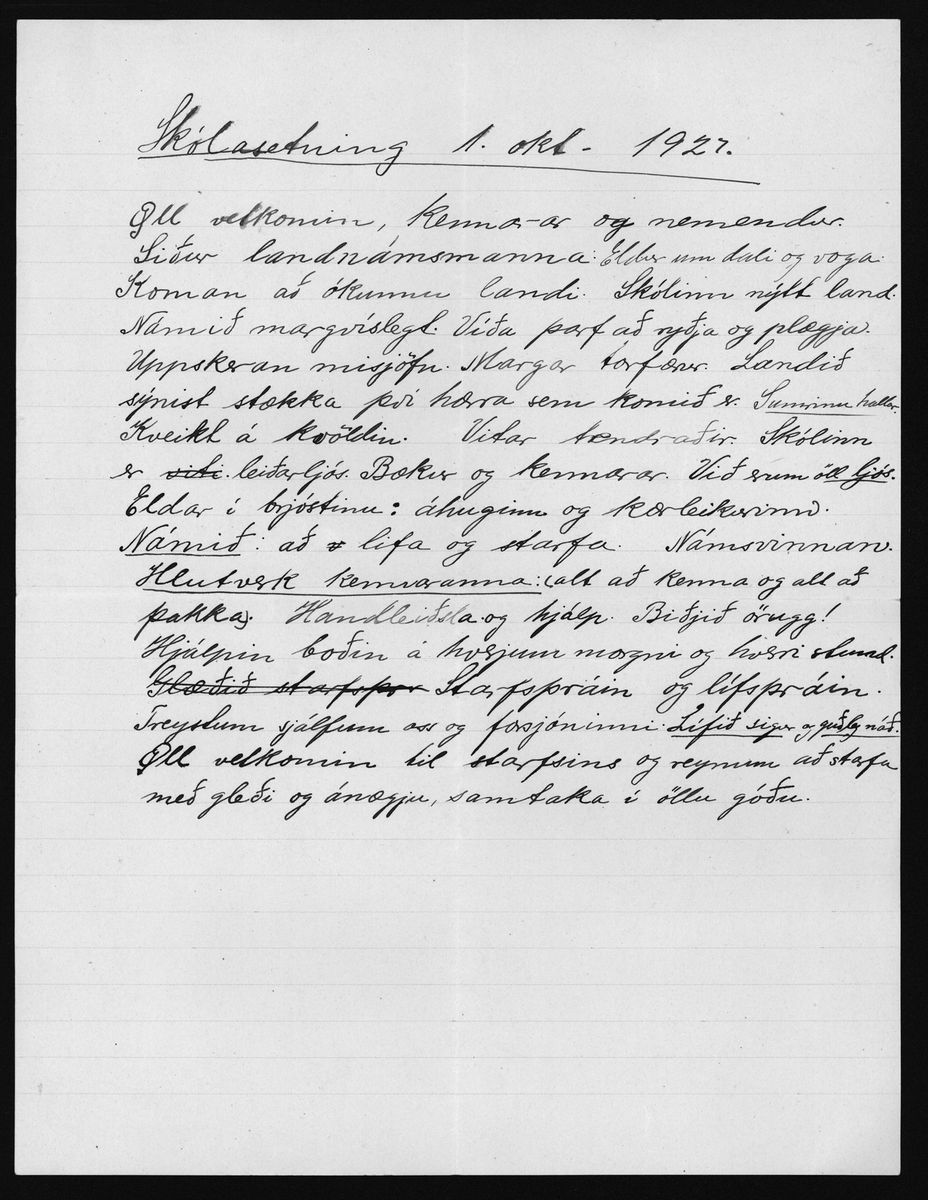 Skólasetning 1. okt. 1927.
Öll velkomin, kennarar og nemendur.
Siður landnámsmanna: Eldur um dali og voga.
Koman að ókunnu landi. Skólinn nýtt land.
Námið margvíslegt. Víða þarf að ryðja og plægja.
Uppskeran misjöfn. Margar torfærur. Landið
sýnist stækka því hærra sem komið er. Sumrinu hallar.
Kveikt á kvöldin. Vitar tendraðir. Skólinn
er viti. leiðarljós. Bækur og kennarar. Við erum öll ljós.
Eldar í brjóstinu: áhuginn og kærleikurinn.
Námið: að lifa og starfa. Námsvinnan.
Hlutverk kennaranna: (alt að kenna og alt að
þakka). Handleiðsla og hjálp. Biðjið örugg!
Hjálpin boðin á hverjum morgni og hverri stund.
Glæðið starfsþrá Starfsþráin og lífsþráin.
Treystum sjálfum oss og forsjóninni. Lífið sigrar og guðleg náð.
Öll velkomin til starfsins og reynum að starfa
með gleði og ánægju, samtaka í öllu góðu.